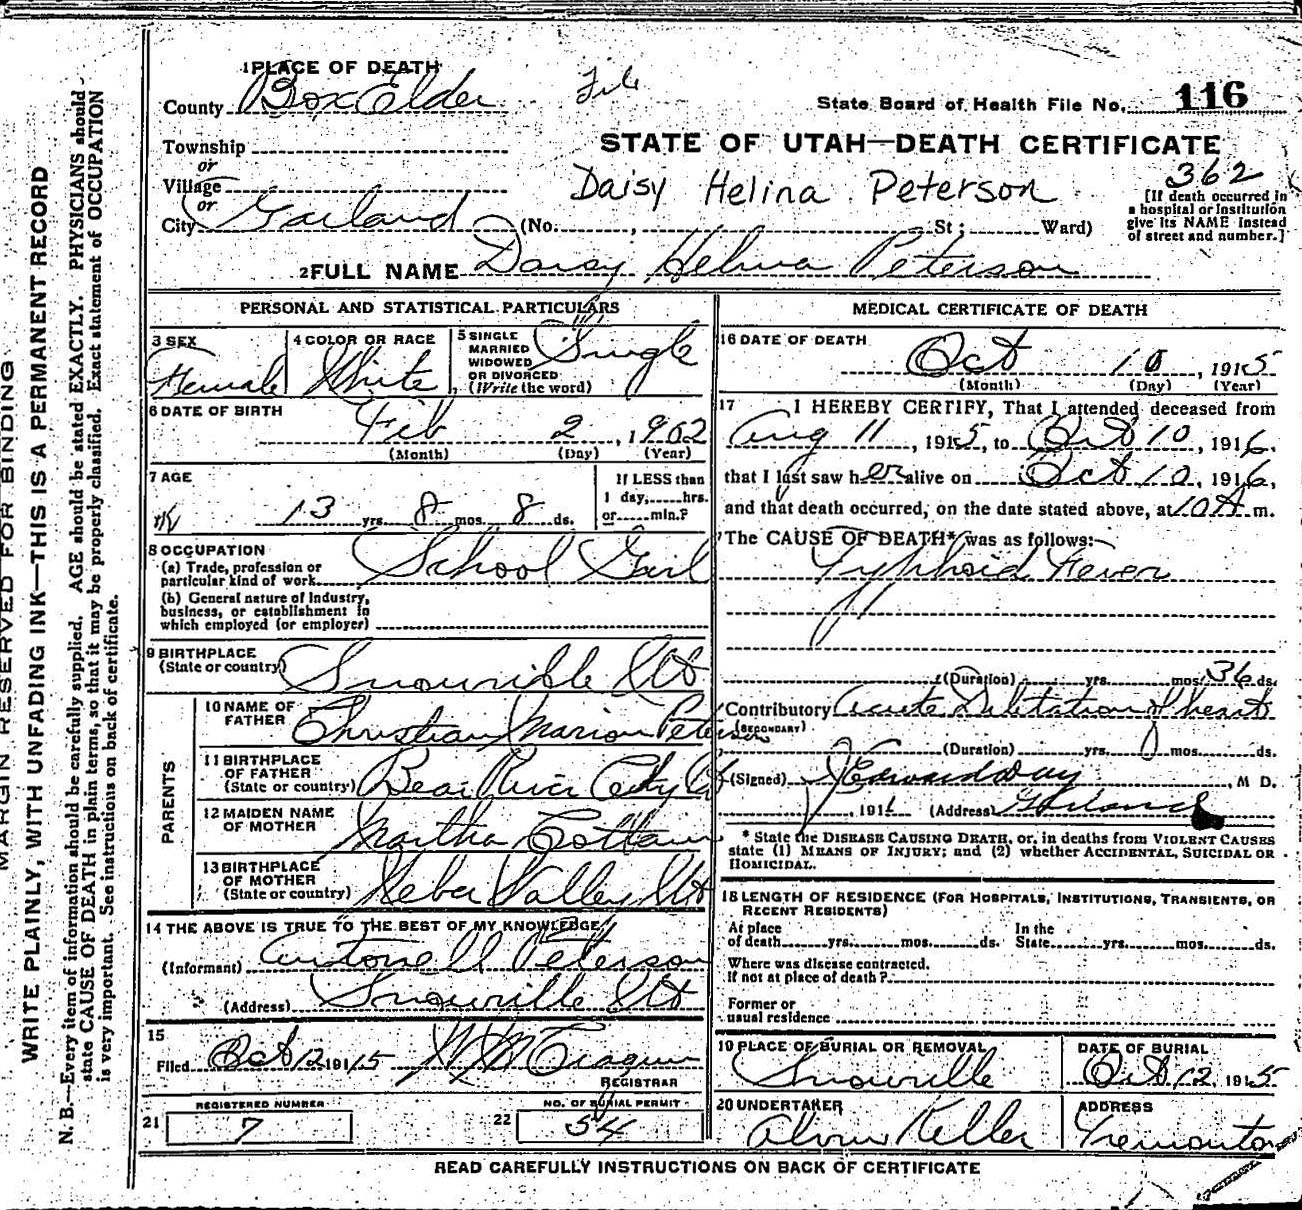 MARGIN RESERVED FOR BINDING
WRITE PLAINLY, WITH UNFADING INK—THIS IS A PERMANENT RECORD
N. B.—Every item of information should be carefully supplied. AGE should be stated EXACTLY. PHYSICIANS should
state CAUSE OF DEATH in plain terms, so that it may be properly classified. Exact statement of OCCUPATION
is very important. See instructions on back of certificate.
1 PLACE OF DEATH
County Box Elder
File
State Board of Health File No. 116
Township
or
Village
or
City Garland
STATE OF UTAH—DEATH CERTIFICATE
362
Daisy Helina Peterson
(No. , St ; Ward)
[If death occurred in
a hospital or institution
give its NAME instead
of street and number.]
2 FULL NAME Daisy Helina Peterson
PERSONAL AND STATISTICAL PARTICULARS
3 SEX
Female
4 COLOR OR RACE
White
5 SINGLE
MARRIED
WIDOWED
OR DIVORCED
(Write the word)
Single
6 DATE OF BIRTH
Feb 2, 1902
(Month) (Day) (Year)
7 AGE
13 yrs. 8 mos. 8 ds.
If LESS than
1 day, hrs.
or min.?
8 OCCUPATION
(a) Trade, profession or
particular kind of work School Girl
(b) General nature of Industry,
business, or establishment in
which employed (or employer)
9 BIRTHPLACE
(State or country) Snowville Ut
PARENTS
10 NAME OF
FATHER Christian Marion Peterson
11 BIRTHPLACE
OF FATHER
(State or country) Bear River City Ut
12 MAIDEN NAME
OF MOTHER Martha Cottam
13 BIRTHPLACE
OF MOTHER
(State or country) Heber Valley Ut
14 THE ABOVE IS TRUE TO THE BEST OF MY KNOWLEDGE
(Informant) Peterson
(Address) Snowville Ut
15
Filed Oct 12 1915
REGISTRAR
REGISTERED NUMBER
21 7
NO. OF BURIAL PERMIT
22 54
MEDICAL CERTIFICATE OF DEATH
16 DATE OF DEATH
Oct 10, 1915
(Month) (Day) (Year)
17 I HEREBY CERTIFY, That I attended deceased from
Aug 11, 1915, to Oct 10, 1916,
that I last saw her alive on Oct 10, 1916,
and that death occurred, on the date stated above, at 10 A m.
The CAUSE OF DEATH* was as follows:
Typhoid Fever
(Duration) yrs. mos. 36 ds.
Contributory Acute Dilitation of heart
(SECONDARY)
(Duration) yrs. mos. ds.
(Signed) J Edward Day, M D.
, 1916 (Address) Garland
* State the DISEASE CAUSING DEATH, or, in deaths from VIOLENT CAUSES
state (1) MEANS OF INJURY; and (2) whether ACCIDENTAL, SUICIDAL OR
HOMICIDAL.
18 LENGTH OF RESIDENCE (FOR HOSPITALS, INSTITUTIONS, TRANSIENTS, OR
RECENT RESIDENTS)
At place
of death yrs. mos. ds.
In the
State yrs. mos. ds.
Where was disease contracted,
If not at place of death?
Former or
usual residence
19 PLACE OF BURIAL OR REMOVAL
Snowville
DATE OF BURIAL
Oct 12, 1915
20 UNDERTAKER
Alvin Keller
ADDRESS
Tremonton
READ CAREFULLY INSTRUCTIONS ON BACK OF CERTIFICATE